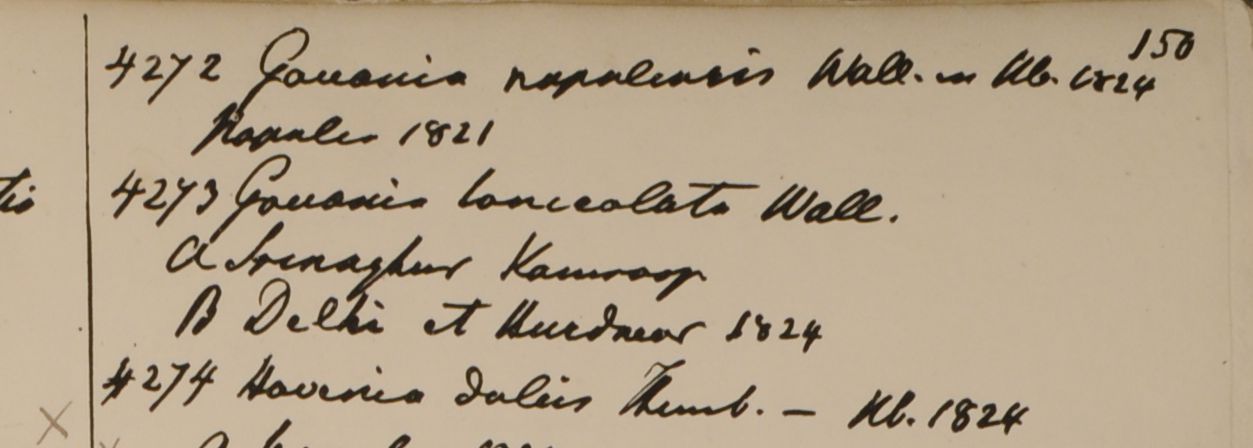 150
4272 Gouania napalensis Wall. in Hb. 1824
Napalia 1821
tis
4273 Gouania lanceolata Wall.
A Srinaghur Kamroop
B Delhi et Hurdwar 1824
4274 Hovenia dulcis Thunb. — Hb. 1824